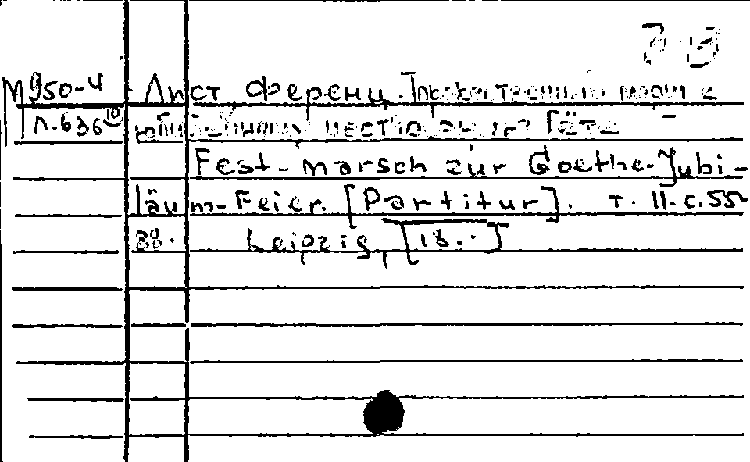 М950-4 Лист, Ференц. Торжественный марш к
Л-636 юбилейному чествованию Гёте
Fest-marsch zur Goethe-Jubi-
läum-Feier. [Partitur]. т. II. с. 55-
88. Leipzig, [18..]